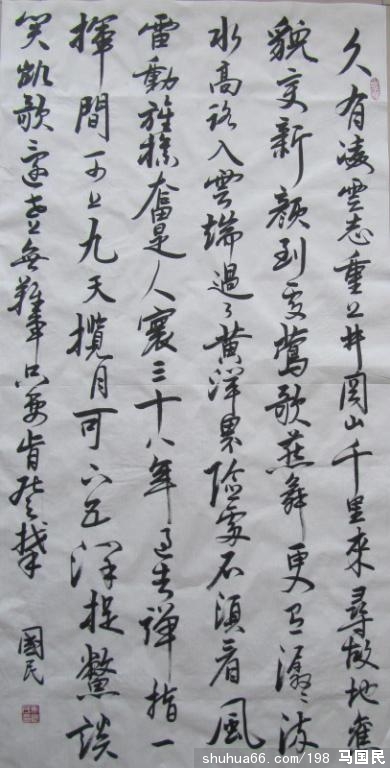 久有凌雲志重上井岡山千里來尋故地舊
貌变新顏到處鶯歌燕舞更有潺々流
水高路入雲端過了黄洋界險處不須看風
雷動旌旗奮是人寰三十八年過去彈指一
揮間可上九天攬月可下五洋捉鱉談
笑凱歌還世上無難事只要肯登攀
國民
shuhua66.com/198 马国民